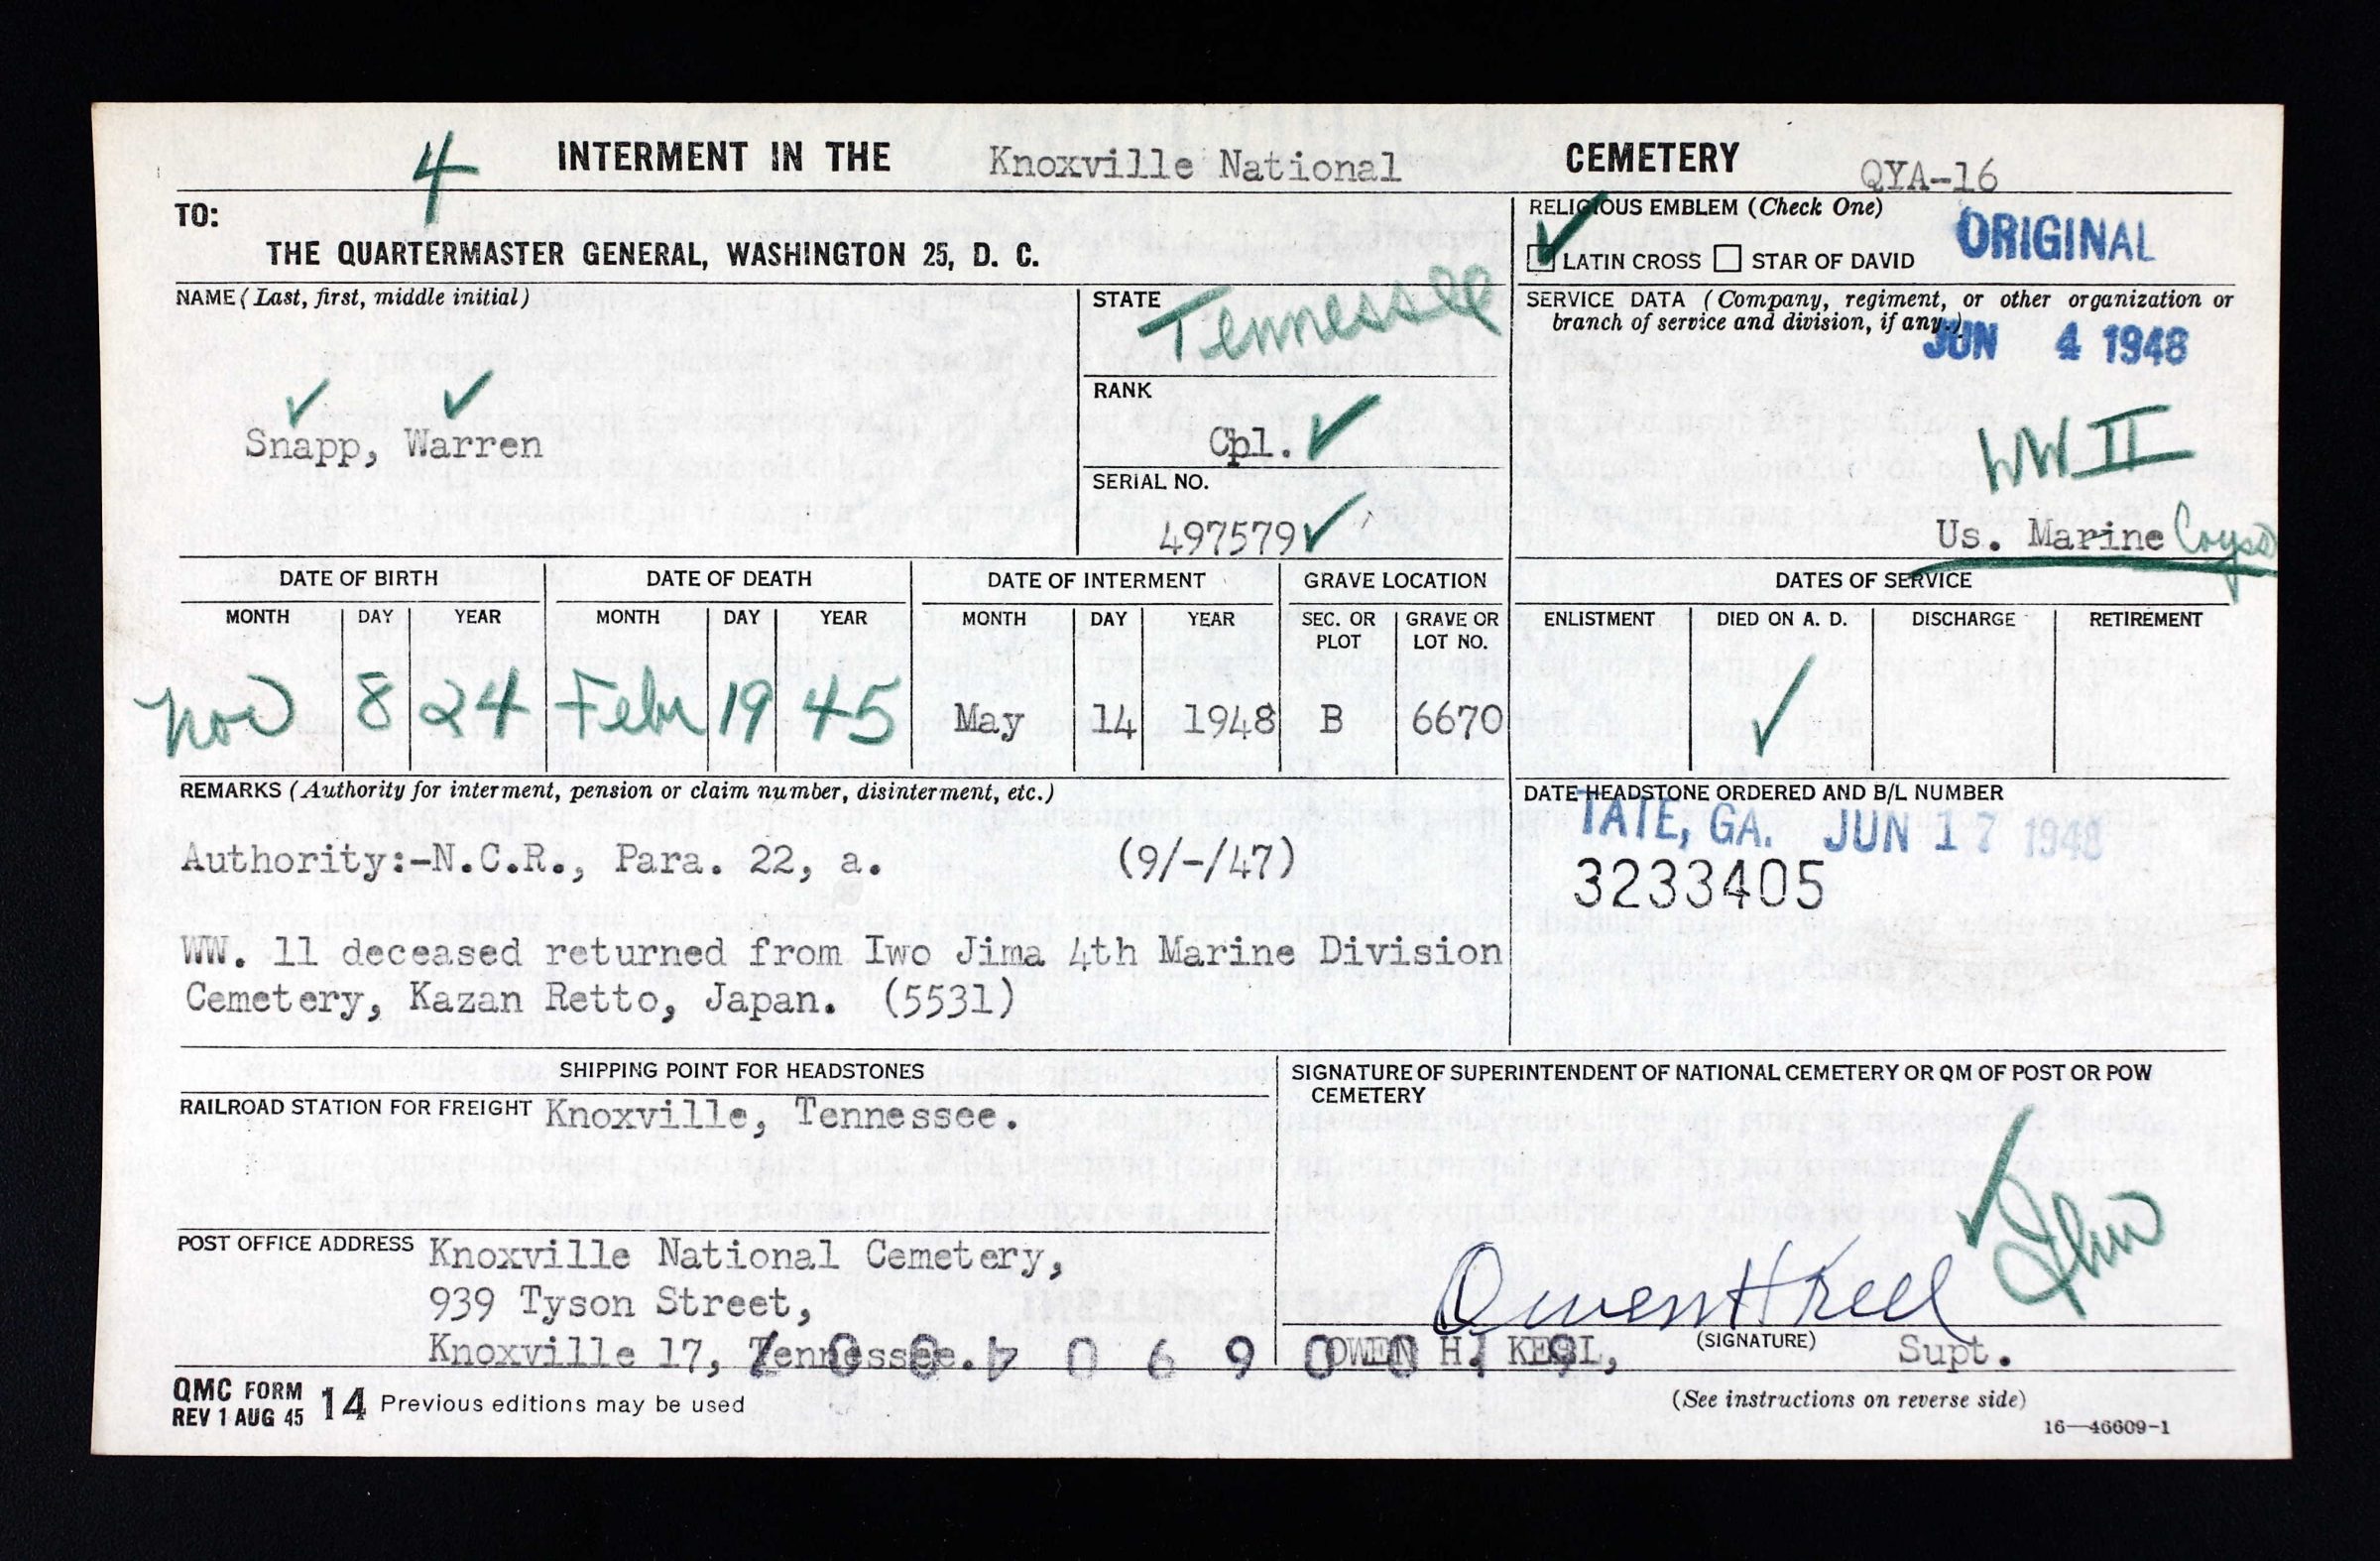 4 INTERMENT IN THE Knoxville National CEMETERY QYA-16
TO:
THE QUARTERMASTER GENERAL, WASHINGTON 25, D. C.
RELIGIOUS EMBLEM (Check One)
LATIN CROSS STAR OF DAVID
ORIGINAL
NAME (Last, first, middle initial)
Snapp, Warren
STATE
Tennessee
RANK
Cpl.
SERIAL NO.
497579
SERVICE DATA (Company, regiment, or other organization or
branch of service and division, if any.)
JUN 4 1948
WW II
Us. Marine Corps
DATE OF BIRTH DATE OF DEATH DATE OF INTERMENT GRAVE LOCATION DATES OF SERVICE
MONTH DAY YEAR MONTH DAY YEAR MONTH DAY YEAR SEC. OR PLOT GRAVE OR LOT NO. ENLISTMENT DIED ON A. D. DISCHARGE RETIREMENT
Nov 8 24 Febr 19 45 May 14 1948 B 6670
REMARKS (Authority for interment, pension or claim number, disinterment, etc.)
Authority:-N.C.R., Para. 22, a. (9/-/47)
WW. 11 deceased returned from Iwo Jima 4th Marine Division
Cemetery, Kazan Retto, Japan. (5531)
DATE HEADSTONE ORDERED AND B/L NUMBER
TATE, GA. JUN 17 1948
3233405
SHIPPING POINT FOR HEADSTONES
RAILROAD STATION FOR FREIGHT Knoxville, Tennessee.
POST OFFICE ADDRESS Knoxville National Cemetery,
939 Tyson Street,
Knoxville 17, Tennessee.
SIGNATURE OF SUPERINTENDENT OF NATIONAL CEMETERY OR QM OF POST OR POW
CEMETERY
Owen H Keel
(SIGNATURE)
OWEN H. KEEL, Supt.
QMC FORM 14 Previous editions may be used
REV 1 AUG 45
(See instructions on reverse side)
16—46609-1